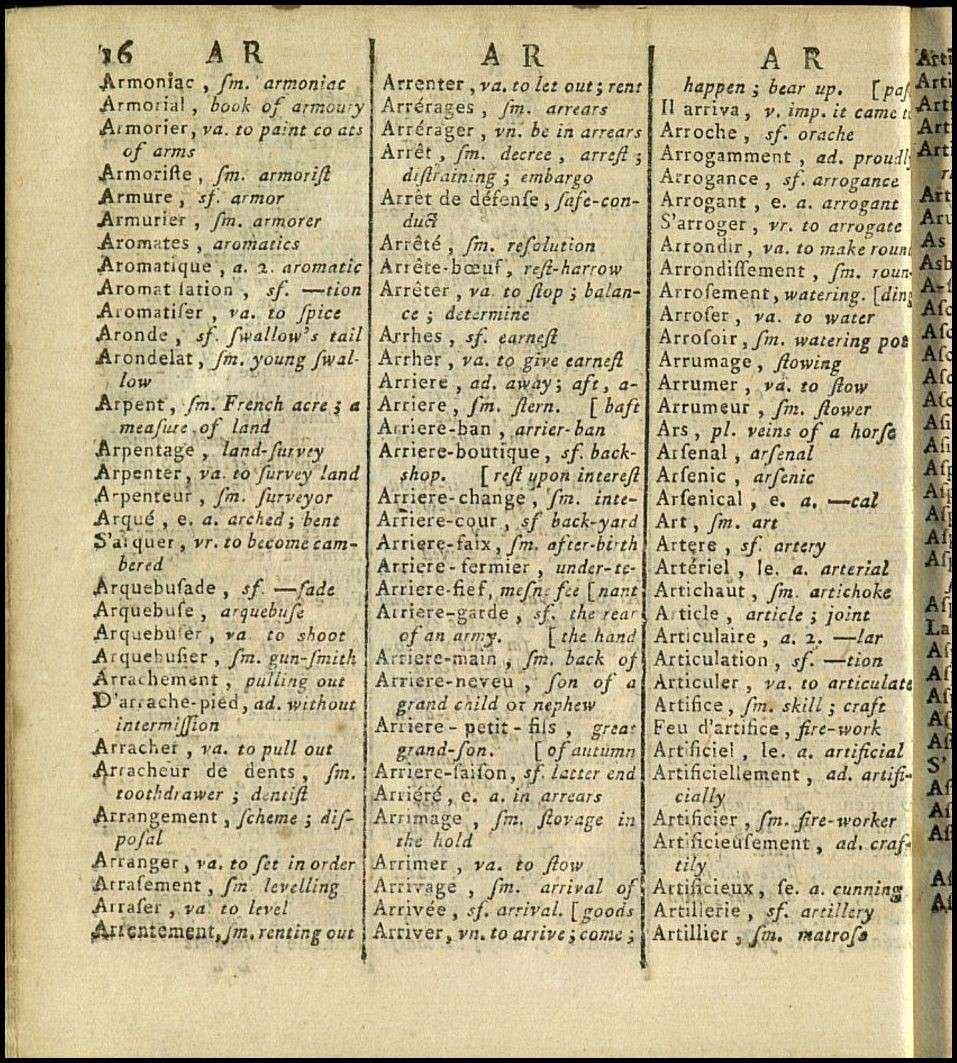 16 A R
Armoniac, ſm. armoniac
Armorial, book of armoury
Armorier, va. to paint co ats
of arms
Armoriſte, ſm. armoriſt
Armure, sf. armor
Armurier, ſm. armorer
Aromates, aromatics
Aromatique, a. 2. aromatic
Aromat ſation, sf. —tion
Aromatiſer, va. to ſpice
Aronde, sf. ſwallow's tail
Arondelat, ſm. young ſwal-
low
Arpent, ſm. French acre; a
meaſure of land
Arpentage, land-ſurvey
Arpenter, va. to ſurvey land
Arpenteur, ſm. ſurveyor
Arqué, e. a. arched; bent
S'arquer, vr. to become cam-
bered
Arquebuſade, sf. —ſade
Arquebuſe, arquebuſe
Arquebuſer, va. to shoot
Arquebuſier, ſm. gun-ſmith
Arrachement, pulling out
D'arrache-pied, ad. without
intermiſſion
Arracher, va. to pull out
Arracheur de dents, ſm.
toothdrawer; dentiſt
Arrangement, ſcheme; diſ-
poſal
Arranger, va. to ſet in order
Arraſement, ſm. levelling
Arraſer, va to level
Arrentement, ſm. renting out
A R
Arrenter, va. to let out; rent
Arrérages, ſm. arrears
Arrérager, vn. be in arrears
Arrêt, ſm. decree, arreſt;
diſtraining; embargo
Arrêt de défenſe, ſafe-con-
duct
Arrêté, ſm. reſolution
Arrête-bœuf, reſt-harrow
Arrêter, va to ſtop; balan-
ce; determine
Arrhes, sf. earneſt
Arrher, va. to give earneſt
Arriere, ad. away; aft, a-
Arriere, ſm. ſtern. [baft
Arriere-ban, arrier-ban
Arriere-boutique, sf. back-
shop. [reſt upon intereſt
Arriere-change, ſm. inte-
Arriere-cour, sf back-yard
Arriere-faix, ſm. after-birth
Arriere-fermier, under-te-
Arriere-fief, meſne fee [nant
Arriere-garde, sf. the rear
of an army. [the hand
Arriere-main, ſm. back of
Arriere-neveu, ſon of a
grand child or nephew
Arriere-petit-fils, great
grand-ſon. [of autumn
Arriere-ſaiſon, sf. latter end
Arriéré, e. a. in arrears
Arrimage, ſm. ſtovage in
the hold
Arrimer, va. to ſtow
Arrivage, ſm. arrival of
Arrivée, sf. arrival. [goods
Arriver, vn. to arrive; come;
A R
happen; bear up. [paſ
Il arriva, v. imp. it came t
Arroche, sf. orache
Arrogamment, ad. proudly
Arrogance, sf. arrogance
Arrogant, e. a. arrogant
S'arroger, vr. to arrogate
Arrondir, va. to make roun
Arrondiſſement, ſm. roun-
Arroſement, watering. [ding
Arroſer, va. to water
Arroſoir, ſm. watering pot
Arrumage, ſtowing
Arrumer, va. to ſtow
Arrumeur, ſm. ſtower
Ars, pl. veins of a horſe
Arſenal, arſenal
Arſenic, arſenic
Arſenical, e. a. —cal
Art, ſm. art
Artere, sf. artery
Artériel, le. a. arterial
Artichaut, ſm. artichoke
Article, article; joint
Articulaire, a. 2. —lar
Articulation, sf. —tion
Articuler, va. to articulate
Artifice, ſm. skill; craft
Feu d'artifice, fire-work
Artificiel, le. a. artificial
Artificiellement, ad. artifi-
cially
Artificier, ſm. fire-worker
Artificieuſement, ad. craf-
tily
Artificieux, ſe. a. cunning
Artillerie, sf. artillery
Artillier, ſm. matroſs